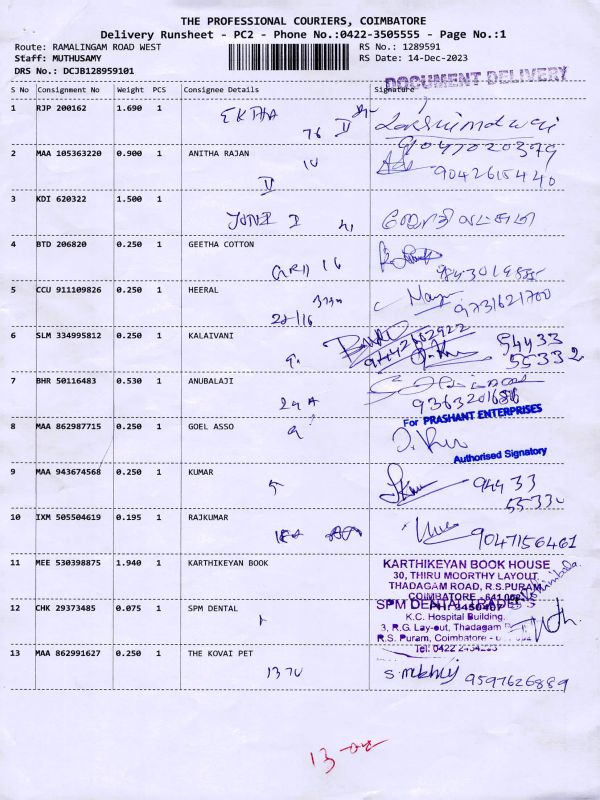 THE PROFESSIONAL COURIERS, COIMBATORE
Delivery Runsheet - PC2 - Phone No.:0422-3505555 - Page No.:1
Route: RAMALINGAM ROAD WEST RS No.: 1289591
Staff: MUTHUSAMY RS Date: 14-Dec-2023
DRS No.: DCJB128959101
DOCUMENT DELIVERY
S No Consignment No Weight PCS Consignee Details Signature
1 RJP 200162 1.690 1 EKTHA
76 II
2 MAA 105363220 0.900 1 ANITHA RAJAN
II 9042615440
3 KDI 620322 1.500 1
4 BTD 206820 0.250 1 GEETHA COTTON
GRD 16
5 CCU 911109826 0.250 1 HEERAL
9731621700
6 SLM 334995812 0.250 1 KALAIVANI
9442602922 94433
55332
7 BHR 50116483 0.530 1 ANUBALAJI
29A 9363201686
For PRASHANT ENTERPRISES
8 MAA 862987715 0.250 1 GOEL ASSO
Authorised Signatory
9 MAA 943674568 0.250 1 KUMAR
94433
10 IXM 505504619 0.195 1 RAJKUMAR
9047156461
11 MEE 530398875 1.940 1 KARTHIKEYAN BOOK
KARTHIKEYAN BOOK HOUSE
30, THIRU MOORTHY LAYOUT,
THADAGAM ROAD, R.S.PURAM,
COIMBATORE - 641 002
12 CHK 29373485 0.075 1 SPM DENTAL
SPM DENTAL TRADERS
K.C. Hospital Building,
3, R.G. Lay-out, Thadagam
R.S. Puram, Coimbatore -
Tel: 0422
13 MAA 862991627 0.250 1 THE KOVAI PET
9597626889
13